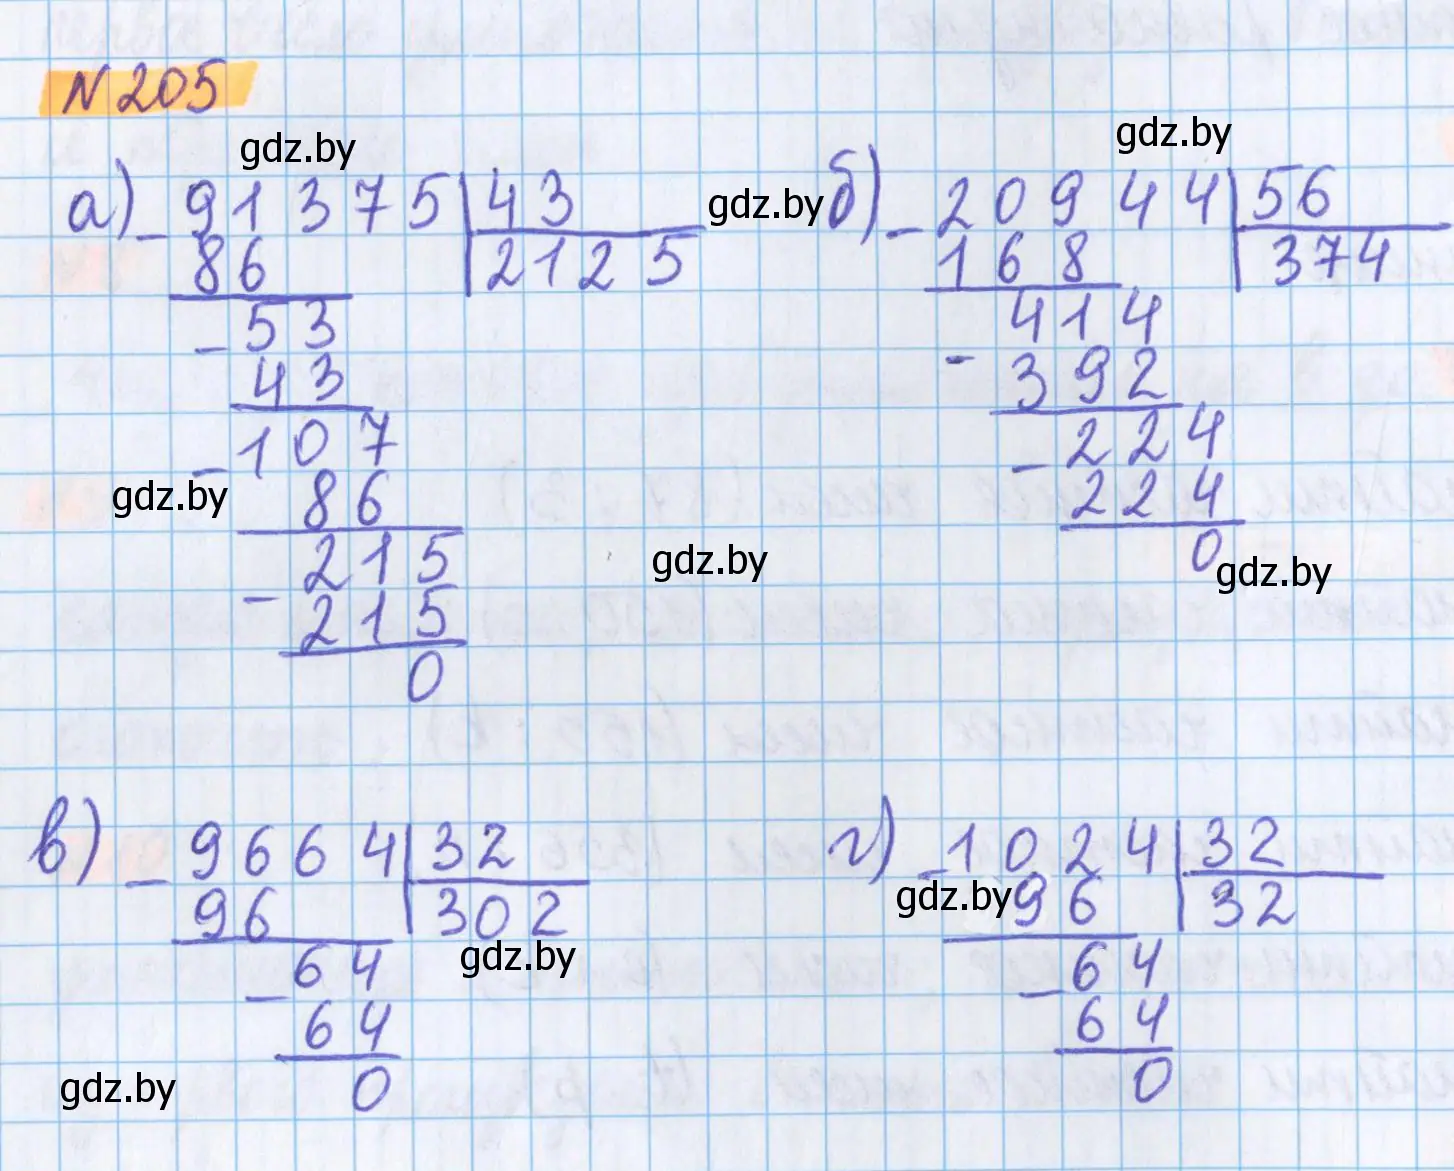 N 205
gdz.by
gdz.by
а) - 91375 | 43
gdz.by
б) - 20944 | 56
86
2125
168
374
- 53
414
43
- 392
- 107
- 224
gdz.by
86
224
215
gdz.by
0
gdz.by
- 215
0
в) - 9664 | 32
г) - 1024 | 32
96
302
gdz.by
96
32
- 64
gdz.by
- 64
64
64
0
0
gdz.by